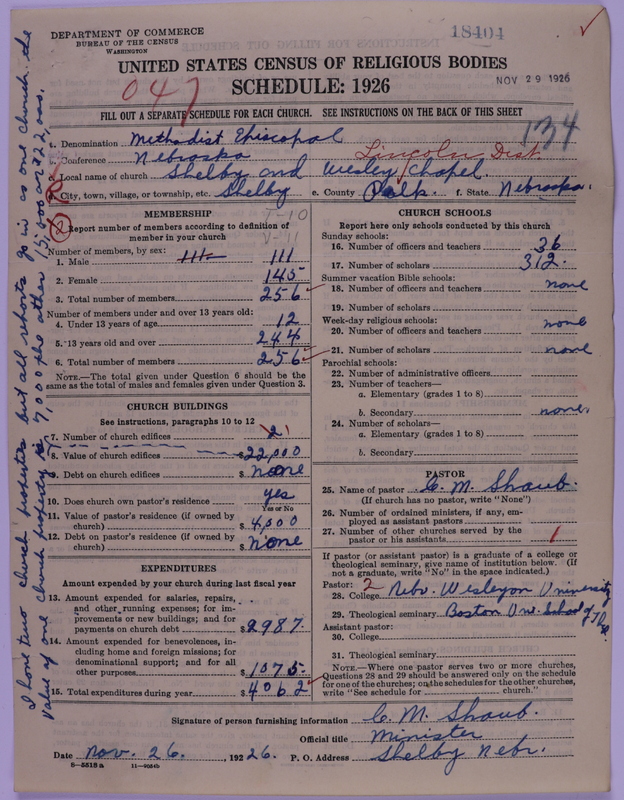 DEPARTMENT OF COMMERCE
BUREAU OF THE CENSUS
WASHINGTON
18404
UNITED STATES CENSUS OF RELIGIOUS BODIES
SCHEDULE: 1926
NOV 29 1926
047
FILL OUT A SEPARATE SCHEDULE FOR EACH CHURCH. SEE INSTRUCTIONS ON THE BACK OF THIS SHEET
134
1. Denomination Methodist Episcopal
Conference Nebraska Lincoln Dist
Local name of church Shelby and Wesley Chapel.
City, town, village, or township, etc. Shelby e. County Polk. f. State Nebraska.
MEMBERSHIP
Report number of members according to definition of
member in your church
2
V-11
Number of members, by sex:
1. Male 111 111
2. Female 145
3. Total number of members 256
Number of members under and over 13 years old:
4. Under 13 years of age 12
5. 13 years old and over 244
6. Total number of members 256
NOTE.—The total given under Question 6 should be
same as the total of males and females given under Question 3.
CHURCH BUILDINGS
See instructions, paragraphs 10 to 12
7. Number of church edifices 2
8. Value of church edifices $22,000
9. Debt on church edifices $ none
10. Does church own pastor's residence yes
Yes or No
11. Value of pastor's residence (if owned by
church) $ 4,000
12. Debt on pastor's residence (if owned by
church) $ none
EXPENDITURES
Amount expended by your church during last fiscal year
13. Amount expended for salaries, repairs,
and other running expenses; for im-
provements or new buildings; and for
payments on church debt $ 2987
14. Amount expended for benevolences, in-
cluding home and foreign missions; for
denominational support; and for all
other purposes $ 1075.
15. Total expenditures during year $ 4062
CHURCH SCHOOLS
Report here only schools conducted by this church
Sunday schools:
16. Number of officers and teachers 36
17. Number of scholars 312.
Summer vacation Bible schools:
18. Number of officers and teachers none
19. Number of scholars
Week-day religious schools:
20. Number of officers and teachers none
21. Number of scholars none
Parochial schools:
22. Number of administrative officers
23. Number of teachers—
a. Elementary (grades 1 to 8)
b. Secondary none.
24. Number of scholars—
a. Elementary (grades 1 to 8)
b. Secondary
PASTOR
25. Name of pastor C. M. Shaub.
(If church has no pastor, write "None")
26. Number of ordained ministers, if any, em-
ployed as assistant pastors
27. Number of other churches served by the
pastor or his assistants 1
If pastor (or assistant pastor) is a graduate of a college or
theological seminary, give name of institution below. (If
not a graduate, write "No" in the space indicated.)
Pastor: 2
28. College Nebr. Wesleyan University
29. Theological seminary Boston Uni. School of
Assistant pastor:
30. College
31. Theological seminary
NOTE.—Where one pastor serves two or more churches,
Questions 28 and 29 should be answered only on the schedule
for one of the churches; on the schedules for the other churches,
write "See schedule for church."
Signature of person furnishing information C. M. Shaub.
Official title Minister
Date Nov. 26. 1926. P. O. Address Shelby Nebr.
8-5518 a
I have two church properties but all reports go in as one church. the
Value of one church property is 7,000 the other 15,000 or $22,000.